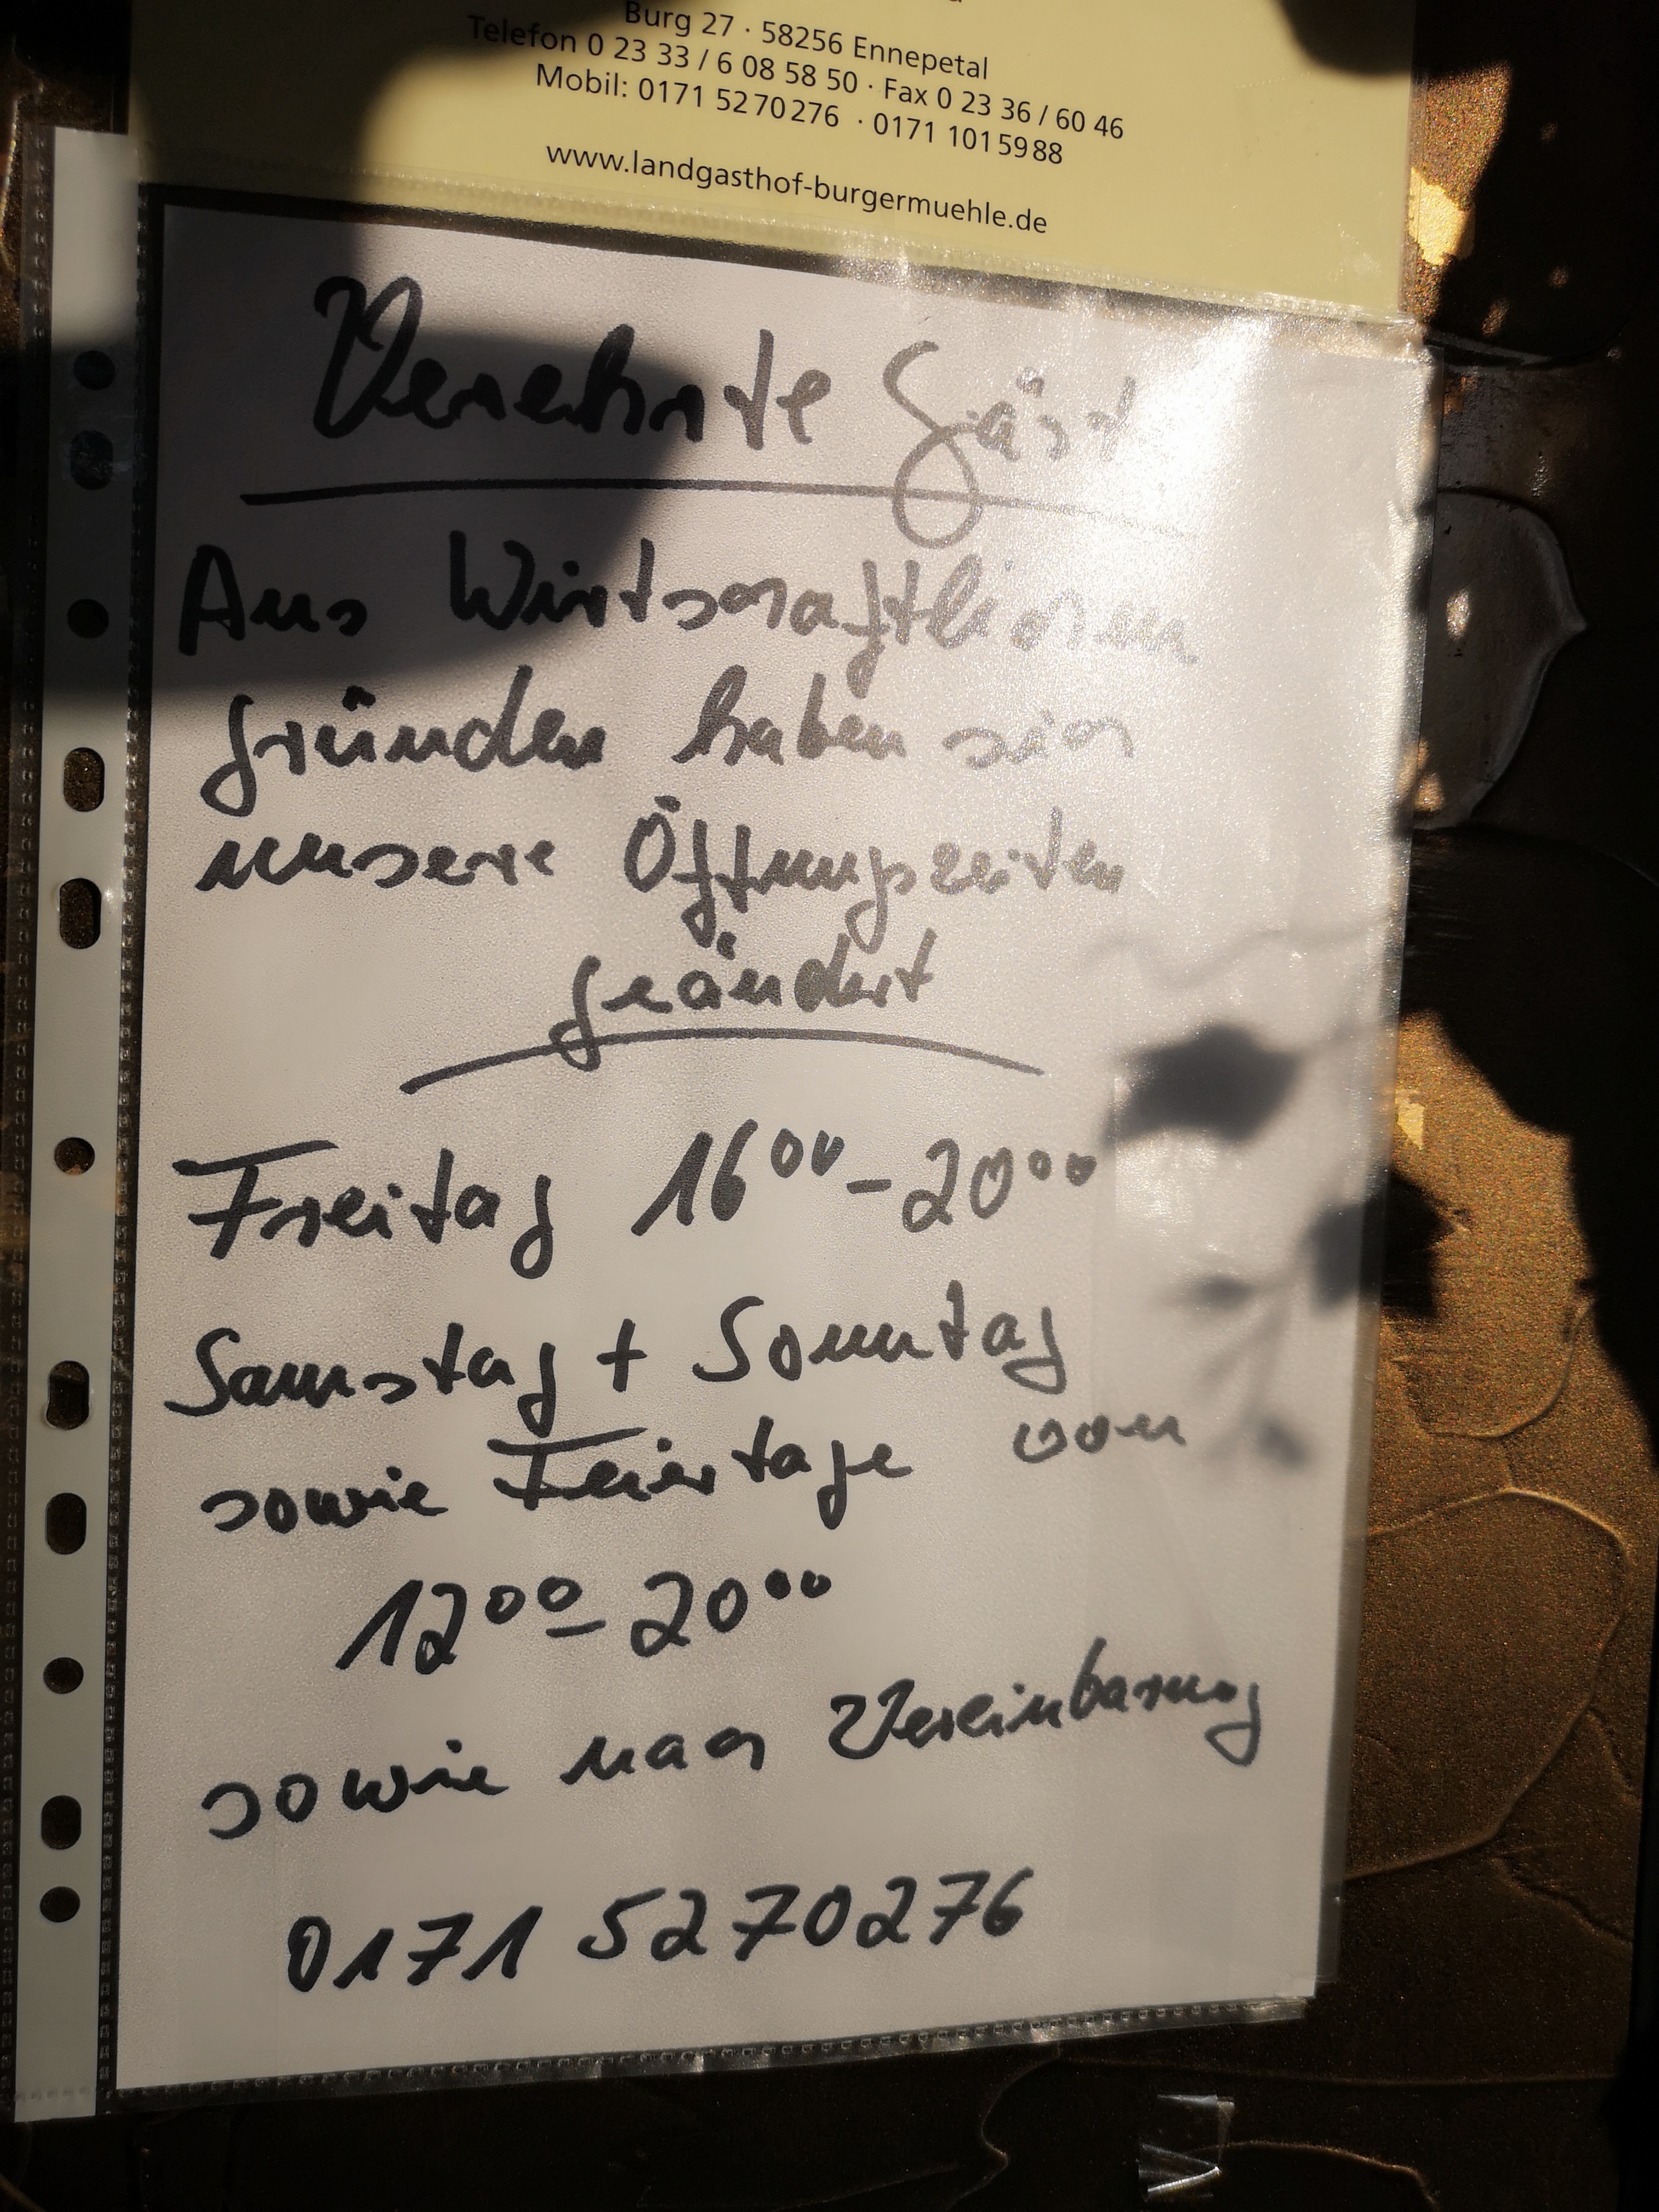 Burg 27 · 58256 Ennepetal
Telefon 0 23 33 / 6 08 58 50 · Fax 0 23 36 / 60 46
Mobil: 0171 5270276 · 0171 1015988
www.landgasthof-burgermuehle.de
Verehrte Gäste
Aus Wirtschaftlichen
gründen haben sich
unsere Öffnungszeiten
geändert
Freitag 16⁰⁰-20⁰⁰
Samstag + Sonntag
sowie Feiertage von
12⁰⁰-20⁰⁰
sowie nach Vereinbarung
0171 5270276